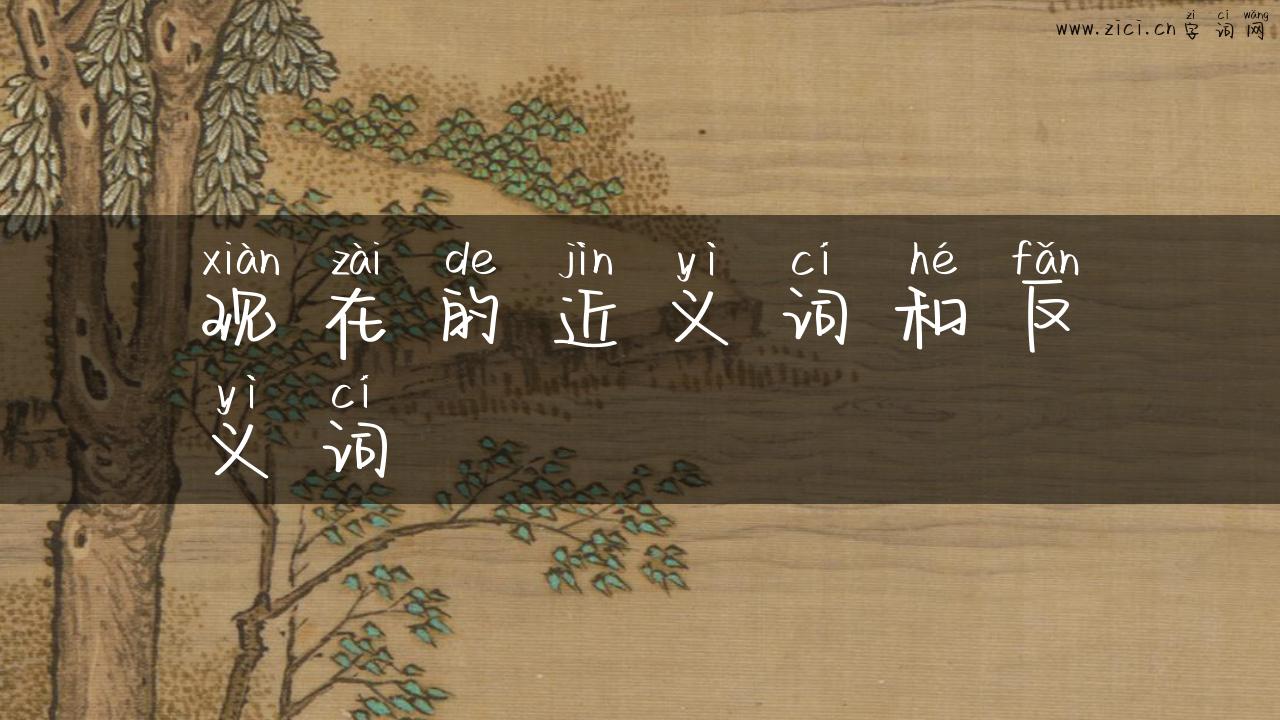 zì cí wǎng
www.zici.cn 字词网
xiàn zài de jìn yì cí hé fǎn
现在的近义词和反
yì cí
义词